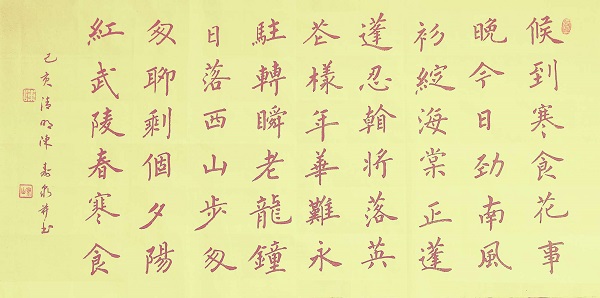 候到寒食花事
晚今日勁南風
初綻海棠正蓬
蓬忍翰將落英
花樣年華難永
駐轉瞬老龍鐘
日落西山步匆
匆聊剩個夕陽
紅武陵春寒食
己亥清明陳壽